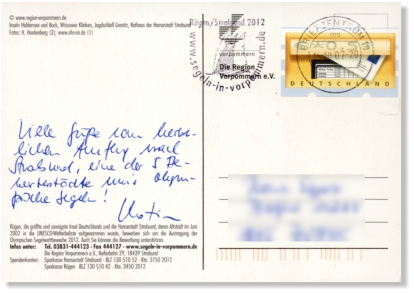 © www.segeln-in-vorpommern.de
Inseln Hiddensee und Rock, Wissower Klinken, Jagdschloß Granitz, Rathaus der Hansestadt Stralsund
Fotos: H. Hardenberg (3); www.ofevin.de (1)
Rügen/Stralsund 2012
www.segeln-in-vorpommern.de
vorpommern
Die Region
Vorpommern e.V.
BRIEFZENTRUM
DEUTSCHLAND
Viele Grüße vom herbst-
lichen Ausflug nach
Stralsund, eine der 5 Be-
werberstädte ums olymp-
ische Segeln!
Rügen, die größte und sonnigste Insel Deutschlands und die Hansestadt Stralsund, deren Altstadt im Juni
2002 in die UNESCO-Welterbeliste aufgenommen wurde, bewerben sich um die Austragung der
Olympischen Segelwettbewerbe 2012. Auch Sie können die Bewerbung unterstützen.
Infos unter: Tel. 03831-444123 - Fax 444127 - www.segeln-in-vorpommern.de
Die Region Vorpommern e.V., 18439 Stralsund
Spendenkonten: Sparkasse Hansestadt Stralsund - BLZ 130 510 52 - Kto. 3750 2012
Sparkasse Rügen - BLZ 130 510 42 - Kto. 3450 2012